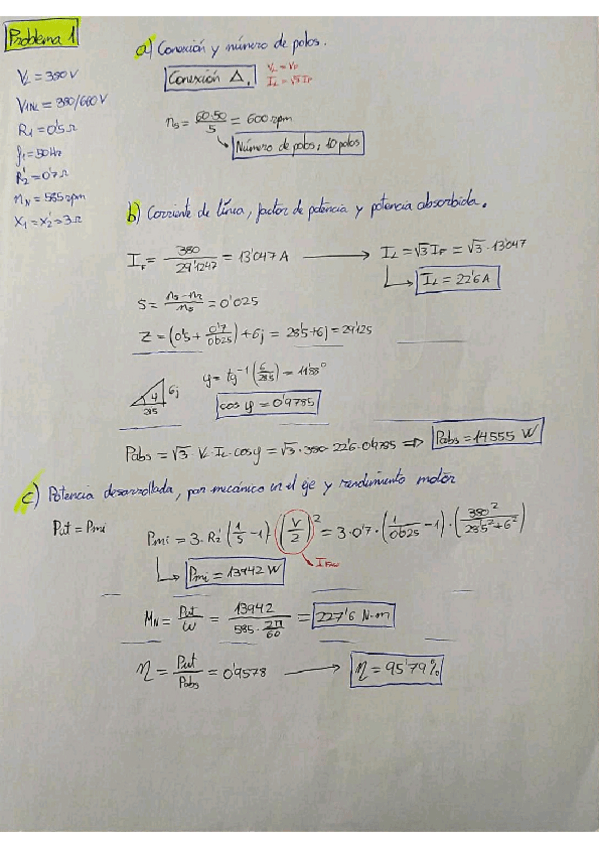 Problema 1
V_L = 380V
V_1NL = 380/660 V
R_1 = 0'5 Ω
f_1 = 50Hz
R_2' = 0'7 Ω
n_N = 585 rpm
X_1 = X_2' = 3 Ω
a) Conexión y número de polos.
Conexión Δ,
V_L = V_F
I_L = √3 I_F
n_s = 60·50/5 = 600 rpm
Número de polos, 10 polos
b) Corriente de línea, factor de potencia y potencia absorbida.
I_F = 380/29'1247 = 13'047 A → I_L = √3 I_F = √3 · 13'047
I_L = 22'6 A
S = (n_s - n_2)/n_s = 0'025
Z = (0'5 + 0'7/0'025) + 6j = 28'5+6j = 29'125
φ
6j
28'5
φ = tg⁻¹(6/28'5) = 11'88°
cos φ = 0'9785
Pabs = √3 · V_L · I_L · cos φ = √3 · 380 · 22'6 · 0'9785 ⇒ Pabs = 14555 W
c) Potencia desarrollada, par mecánico en el eje y rendimiento motor
Put = Pmi
Pmi = 3 · R_2' (1/S - 1) · (V/Z)² = 3 · 0'7 · (1/0'025 - 1) · (380²/(28'5²+6²))
Pmi = 13942 W
M_N = Put/ω = 13942/(585 · 2π/60) = 227'6 N·m
η = Put/Pabs = 0'9578 → η = 95'79%